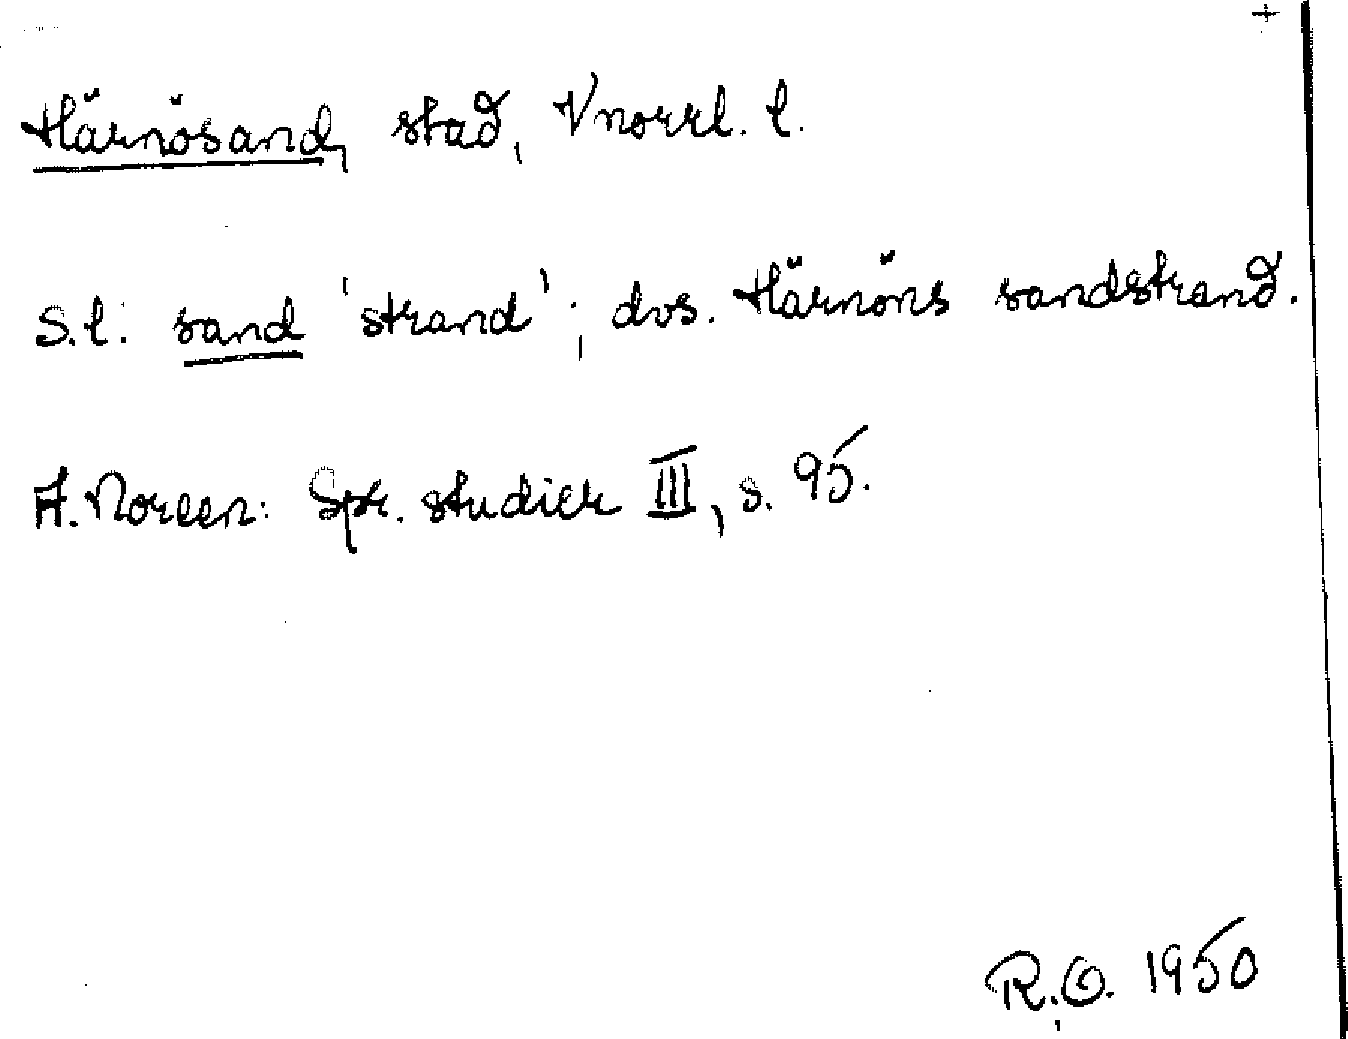 +
Härnösand, stad, Vnorrl. l.
S.l: sand 'strand'; dvs. Härnöns sandstrand.
A. Noreen: Spr. studier III, s. 95.
R.O. 1950